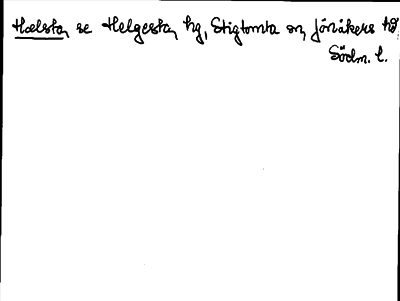 Hælsta, se Helgesta, hg, Stigtomta sn, Jönåkers hd,
Södm. l.